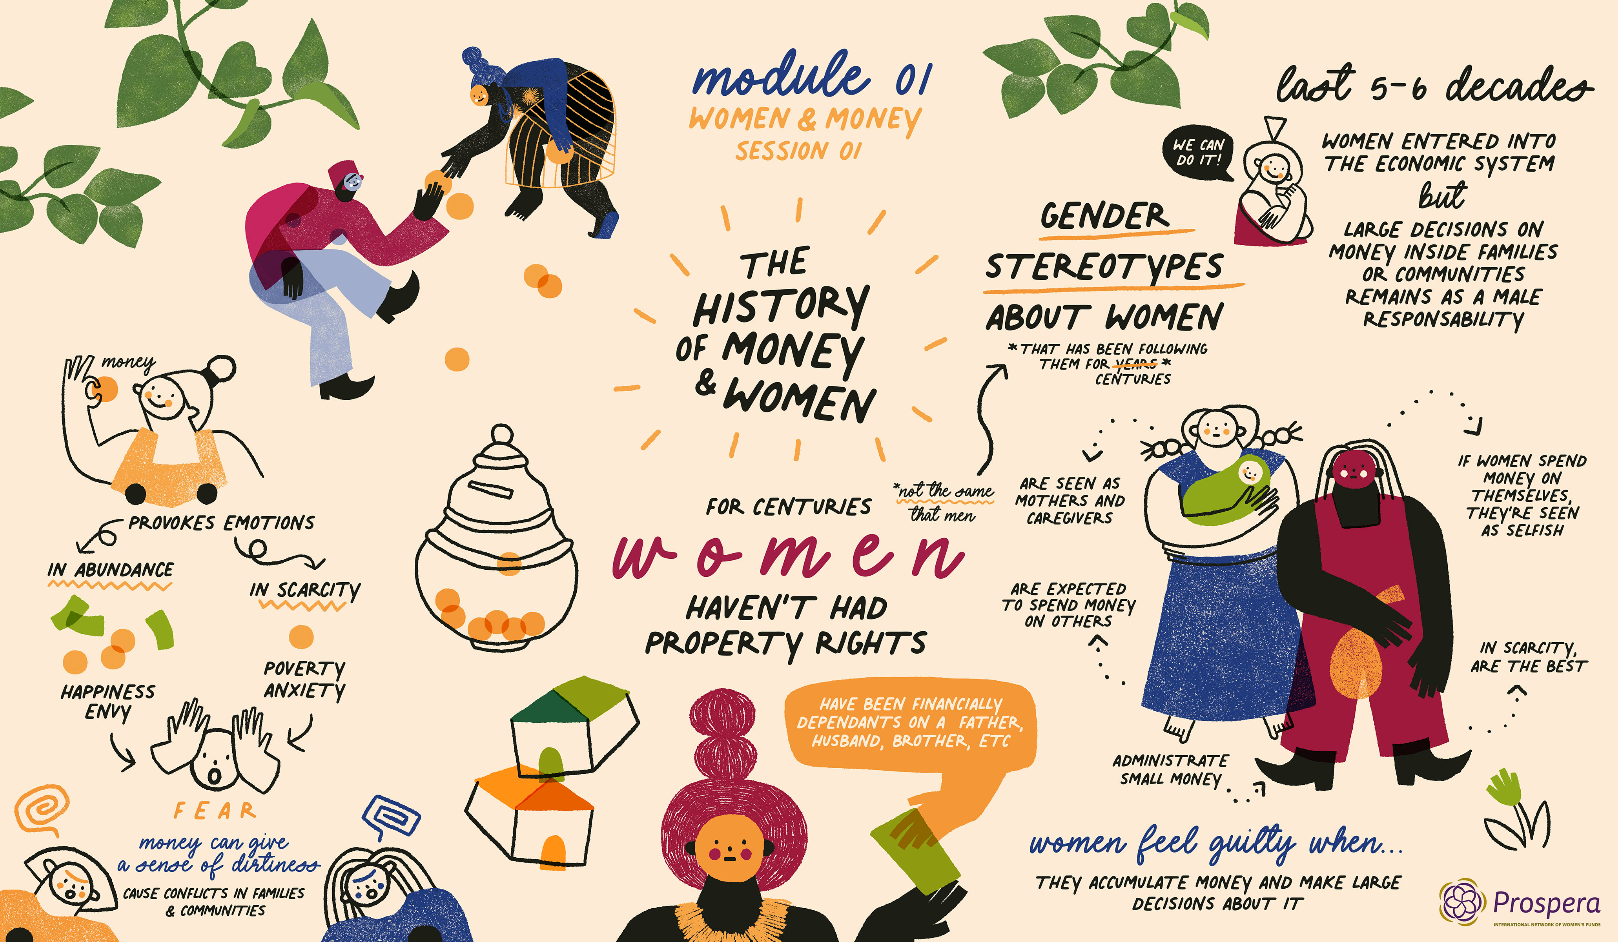 module 01
WOMEN & MONEY
SESSION 01
THE
HISTORY
OF MONEY
& WOMEN
money
PROVOKES EMOTIONS
IN ABUNDANCE
HAPPINESS
ENVY
IN SCARCITY
POVERTY
ANXIETY
FEAR
money can give
a sense of dirtiness
CAUSE CONFLICTS IN FAMILIES
& COMMUNITIES
FOR CENTURIES
women
HAVEN'T HAD
PROPERTY RIGHTS
HAVE BEEN FINANCIALLY
DEPENDANTS ON A FATHER,
HUSBAND, BROTHER, ETC
GENDER
STEREOTYPES
ABOUT WOMEN
*THAT HAS BEEN FOLLOWING
THEM FOR YEARS *
CENTURIES
*not the same
that men
ARE SEEN AS
MOTHERS AND
CAREGIVERS
ARE EXPECTED
TO SPEND MONEY
ON OTHERS
ADMINISTRATE
SMALL MONEY
IF WOMEN SPEND
MONEY ON
THEMSELVES,
THEY'RE SEEN
AS SELFISH
IN SCARCITY,
ARE THE BEST
women feel guilty when...
THEY ACCUMULATE MONEY AND MAKE LARGE
DECISIONS ABOUT IT
last 5-6 decades
WE CAN
DO IT!
WOMEN ENTERED INTO
THE ECONOMIC SYSTEM
but
LARGE DECISIONS ON
MONEY INSIDE FAMILIES
OR COMMUNITIES
REMAINS AS A MALE
RESPONSABILITY
Prospera
INTERNATIONAL NETWORK OF WOMEN'S FUNDS